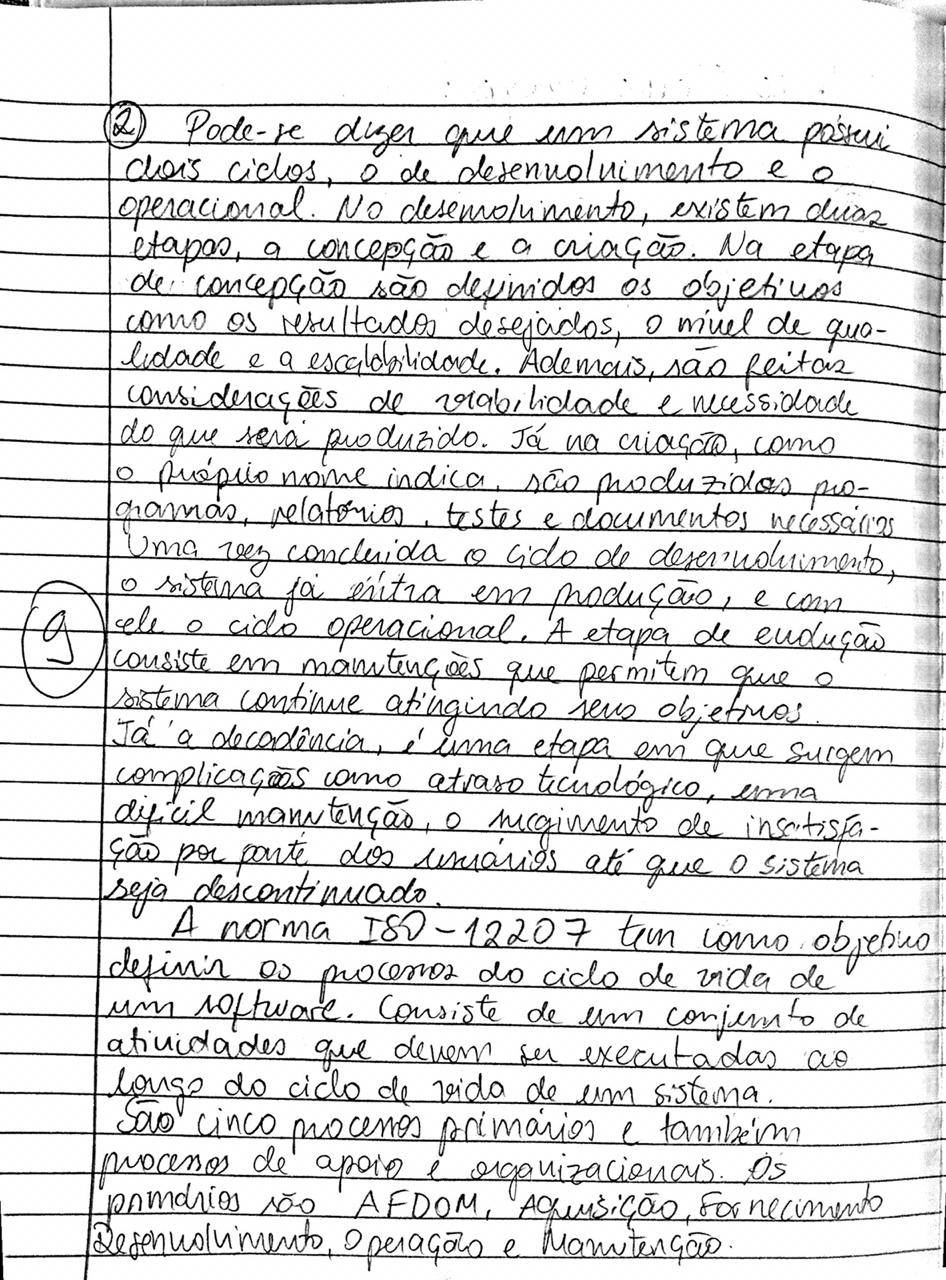 2 Pode-se dizer que um sistema possui
dois ciclos, o de desenvolvimento e o
operacional. No desenvolvimento, existem duas
etapas, a concepção e a criação. Na etapa
de concepção são definidos os objetivos
como os resultados desejados, o nível de qua-
lidade e a escalabilidade. Ademais, são feitas
considerações de viabilidade e necessidade
do que será produzido. Já na criação, como
o próprio nome indica, são produzidos pro-
gramas, relatórios, testes e documentos necessários
Uma vez concluida o ciclo de desenvolvimento,
o sistema já entra em produção, e com
ele o ciclo operacional. A etapa de evolução
9
consiste em manutenções que permitem que o
sistema continue atingindo seus objetivos.
Já a decadência, é uma etapa em que surgem
complicações como atraso tecnológico, uma
difícil manutenção, o surgimento de insatisfa-
ção por parte dos usuários até que o sistema
seja descontinuado.
A norma ISO-12207 tem como objetivo
definir os processos do ciclo de vida de
um software. Consiste de um conjunto de
atividades que devem ser executadas ao
longo do ciclo de vida de um sistema.
São cinco processos primários e também
processos de apoio e organizacionais. Os
primários são AFDOM, Aquisição, Fornecimento
Desenvolvimento, Operação e Manutenção.